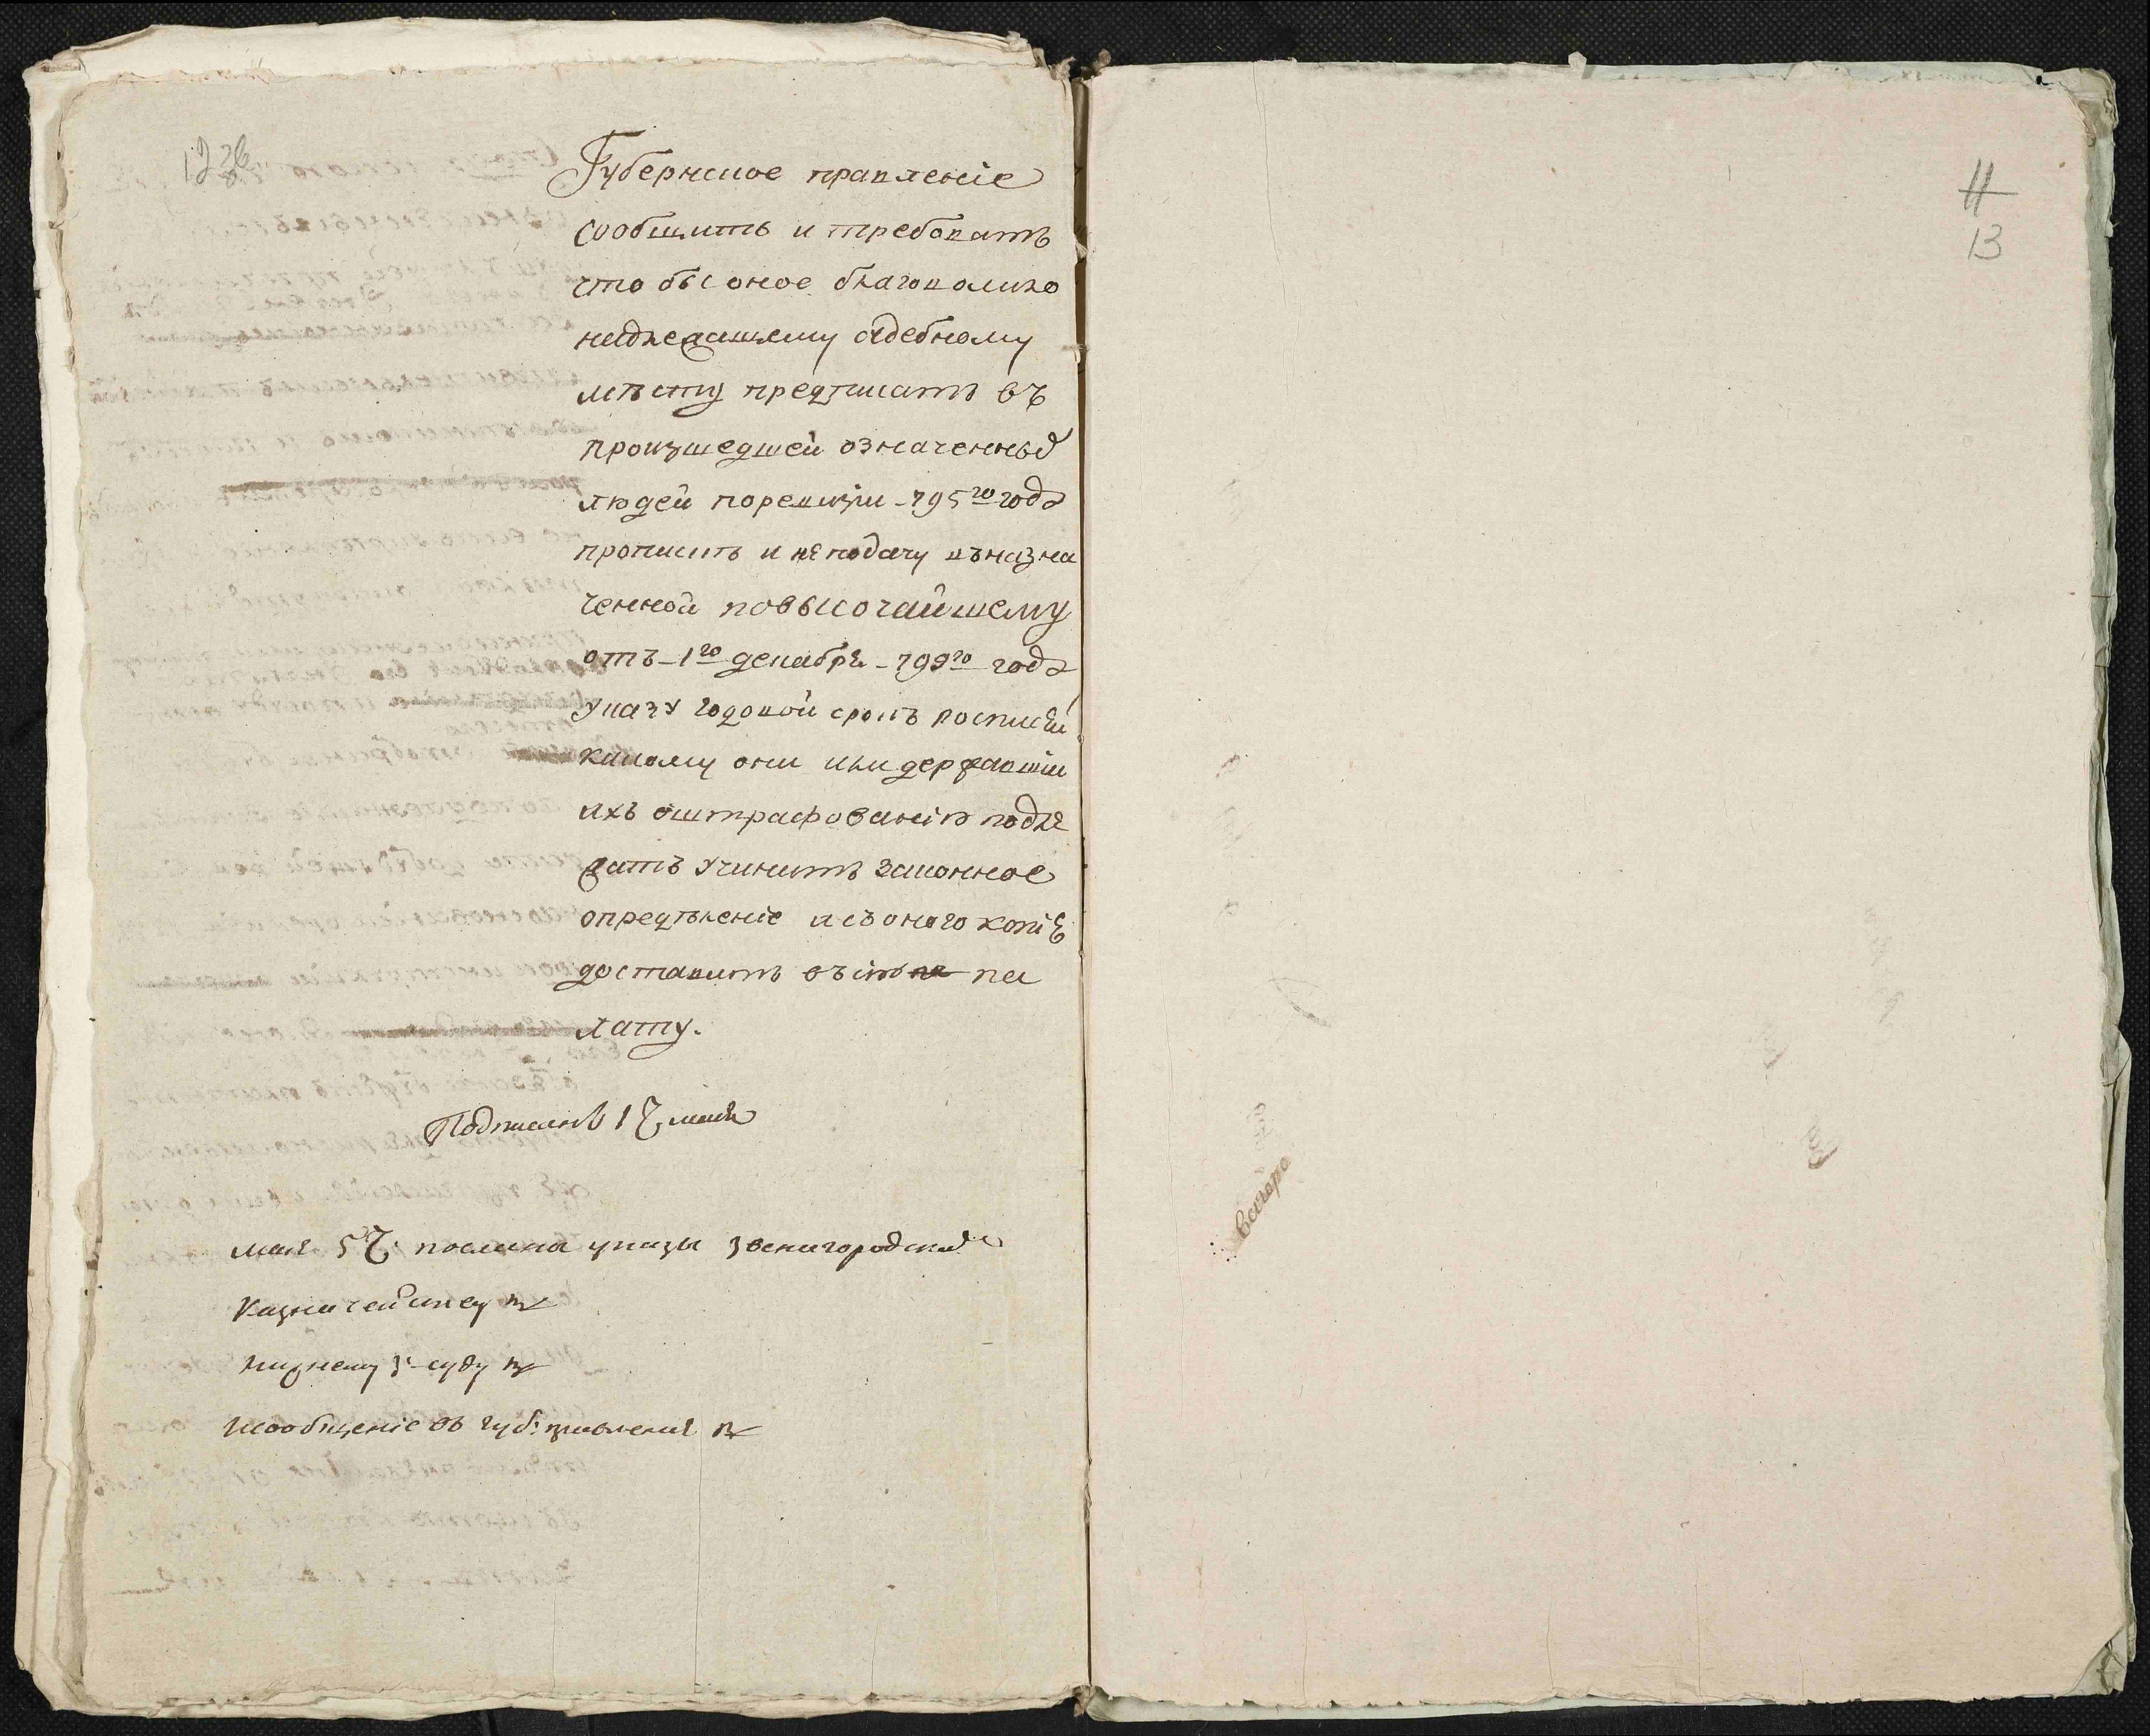 12 об
Губернское правленіе
сообщить и требовать
что бы оное благоволило
надлежащему судебному
мѣсту предписать въ
произшедшей означенных
людей поревизіи 795го года
прописить и не подачу въ назна
ченной повысочайшему
отъ 1го декабря 799го года
указу годовой срокъ росписки
какому они или державшіи
ихъ оштрафованію подле
жатъ учинить законное
опредѣленіе и съ оного копіе
доставить въ сію па
лату.
Подписанъ 1 ч мая
мая 5 ч. посланы указы звенигородским
Казначейству
нижнему з. суду
и сообщеніе въ губ: правленія
11
13